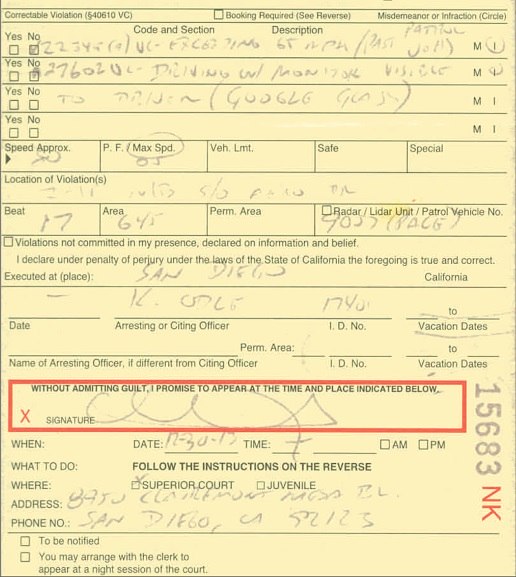 Correctable Violation (§40610 VC) Booking Required (See Reverse) Misdemeanor or Infraction (Circle)
Yes No Code and Section Description
22349(a) VC - EXCEEDING 65 MPH / (PAST PATROL M I
Yes No
27602 VC - DRIVING W/ MONITOR VISIBLE M I
Yes No
TO DRIVER (GOOGLE GLASS) M I
Yes No
M I
Speed Approx. P. F. / Max Spd. Veh. Lmt. Safe Special
80 65
Location of Violation(s)
S/O
Beat Area Perm. Area Radar / Lidar Unit / Patrol Vehicle No.
17 645 (PACE)
Violations not committed in my presence, declared on information and belief.
I declare under penalty of perjury under the laws of the State of California the foregoing is true and correct.
Executed at (place): SAN DIEGO California
K. ODLE to
Date Arresting or Citing Officer I. D. No. Vacation Dates
Perm. Area: to
Name of Arresting Officer, if different from Citing Officer I. D. No. Vacation Dates
WITHOUT ADMITTING GUILT, I PROMISE TO APPEAR AT THE TIME AND PLACE INDICATED BELOW.
X SIGNATURE
WHEN: DATE: TIME: AM PM
WHAT TO DO: FOLLOW THE INSTRUCTIONS ON THE REVERSE
WHERE: X SUPERIOR COURT JUVENILE
ADDRESS: 8950 CLAIREMONT MESA BL.
PHONE NO.: SAN DIEGO, CA 92123
To be notified
You may arrange with the clerk to
appear at a night session of the court.
15683 NK